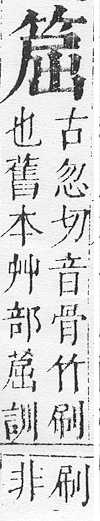 古忽切音骨竹刷
也舊本艸部䓛訓
刷
非